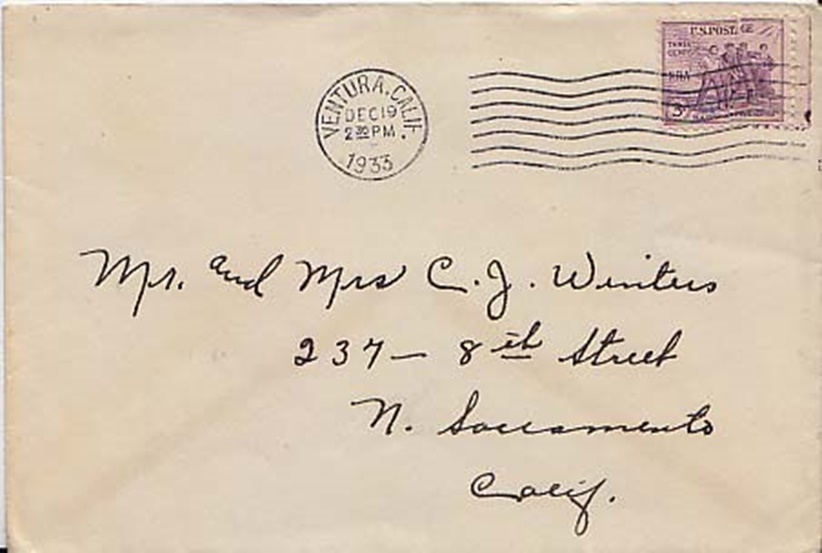 U.S. POSTAGE
THREE
CENTS
NRA
3
VENTURA, CALIF.
DEC 19
2 30 PM
1933
Mr. and Mrs C. J. Winters
237 – 8th Street
N. Sacramento
Calif.